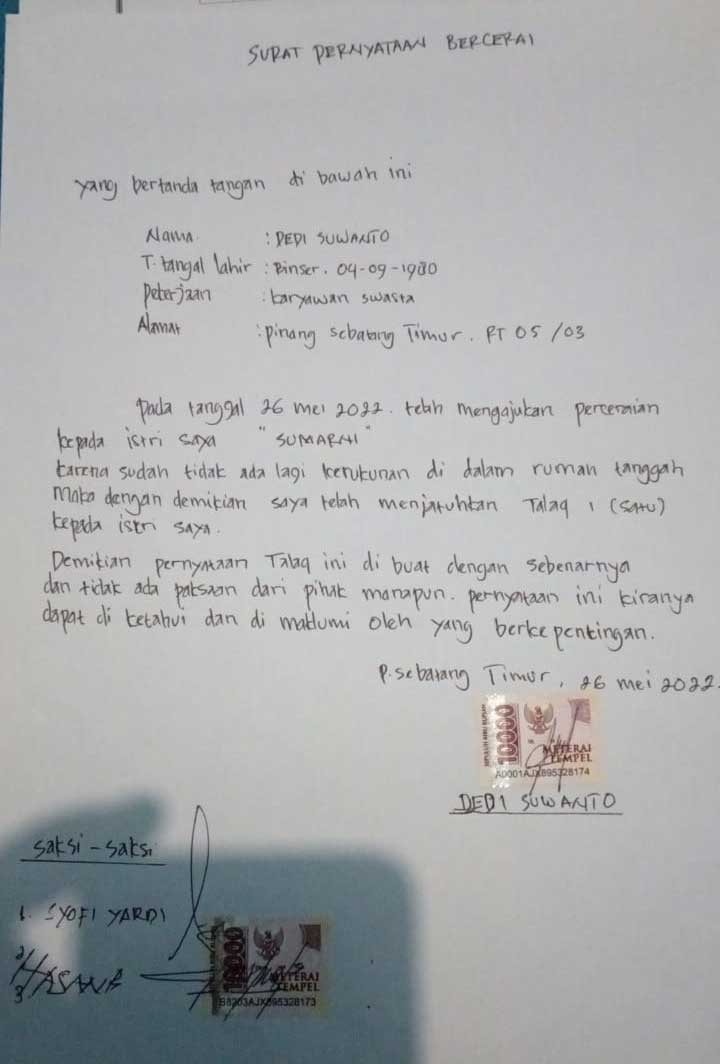 SURAT PERNYATAAN BERCERAI
yang bertanda tangan di bawah ini
Nama : DEDI SUWANTO
T. tangal lahir : Binser. 04-09-1980
Pekerjaan : karyawan swasta
Alamat : pinang sebatang Timur. RT 05 /03
pada tanggal 26 mei 2022. telah mengajukan perceraian
kepada istri saya "SUMARNI"
karena sudah tidak ada lagi kerukunan di dalam rumah tanggah
maka dengan demikian saya telah menjatuhkan Talaq 1 (satu)
kepada istri saya.
Demikian pernyataan Talaq ini di buat dengan sebenarnya
dan tidak ada paksaan dari pihak manapun. pernyataan ini kiranya
dapat di ketahui dan di maklumi oleh yang berkepentingan.
P. sebatang Timur, 26 mei 2022.
10000
METERAI
TEMPEL
A0001AJX895328174
DEDI SUWANTO
saksi - saksi
1. SYOFI YARDI
2
3 HASANA
10000
METERAI
TEMPEL
B8203AJX895328173